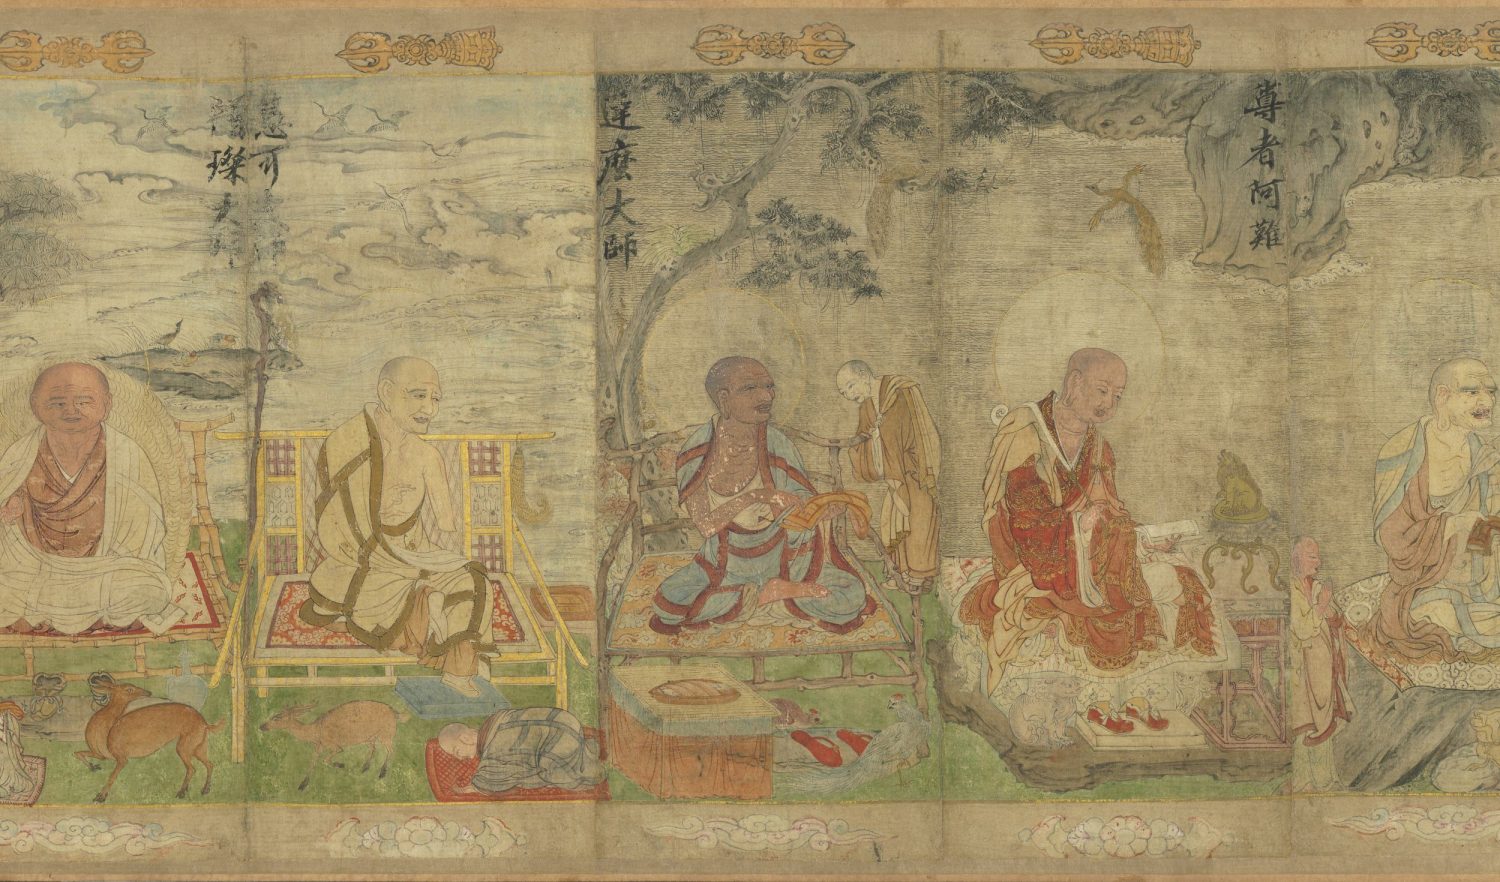 尊者阿難
達麽大師
慧可大師
僧璨大師